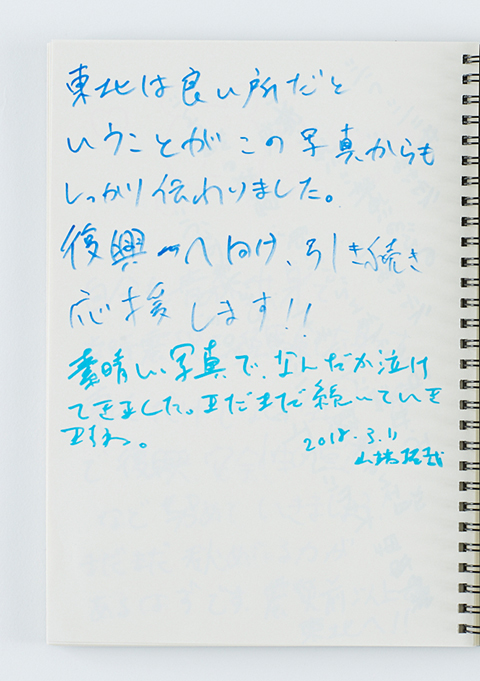 東北は良い所だと
いうことがこの写真からも
しっかり伝わりました。
復興へ向け、引き続き
応援します!!
素晴しい写真で、なんだか泣け
てきました。まだまだ続いていき
ますね。
2018.3.11